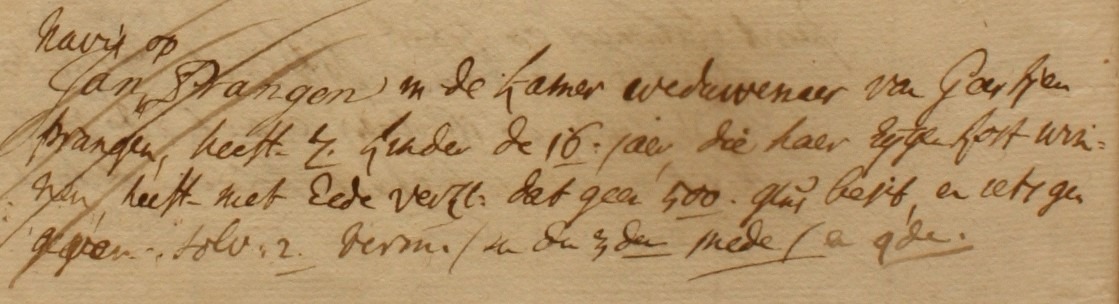 Navis op
Jan Prangen in de kamer weduwenaer van Gartjen
Prangen, heeft 2 kinder de 16 jaer, die haer eygen kost win-
nen, heeft met Eede verkl: dat geen 500 guls besit, en iets
gegeven. solv: 2. verm. den 3den mede